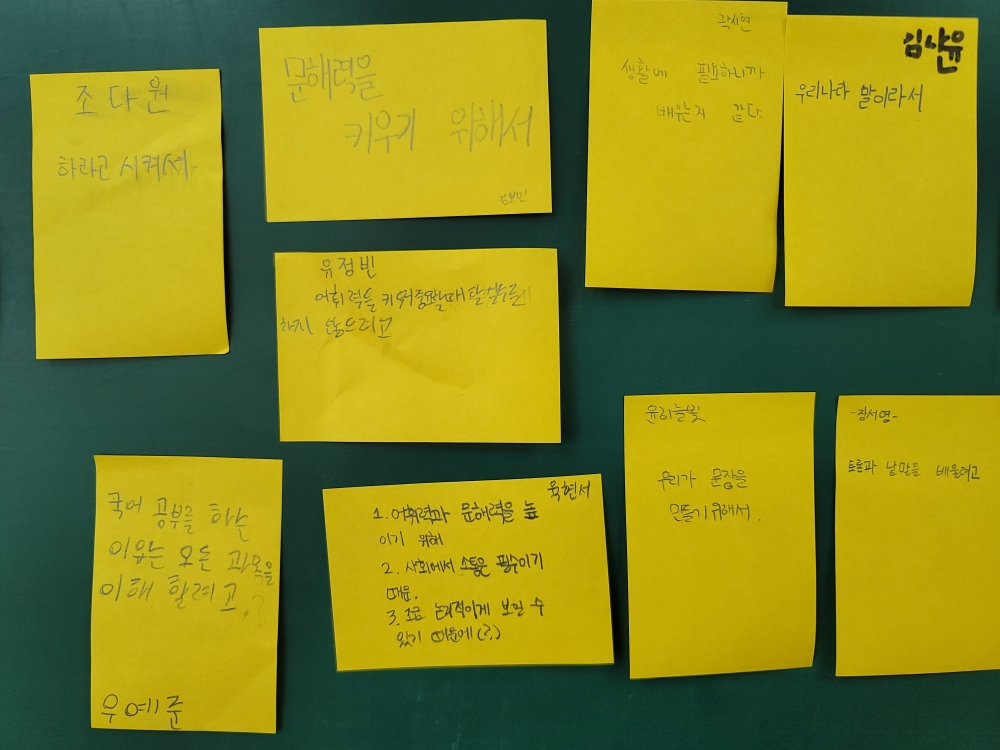 조다원
하라고 시켜서
문해력을
키우기 위해서
김보민
곽시연
생활에 필요하니까
배우는지 같다.
김나윤
우리나라 말이라서
유정빈
어휘력을 키워 할때 말실수를
하지 않으려고
국어 공부를 하는
이유는 모든 과목을
이해 할려고.?
우예준
육현서
1. 어휘력과 문해력을 높
이기 위해
2. 사회에서 소통은 필수이기
때문.
3. 조금 논리적이게 보일 수
있기 때문에(?)
윤하늘빛
우리가 문장을
만들기 위해서.
-장서영-
토론과 낱말을 배울려고